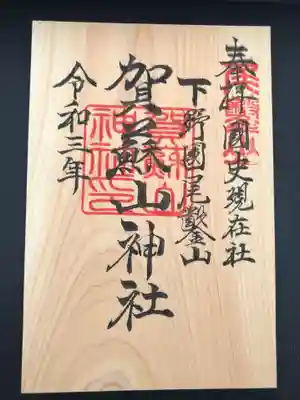 奉拝 國史現在社
下野國尾鑿山
賀蘇山神社
令和三年
賀蘇山
神社印